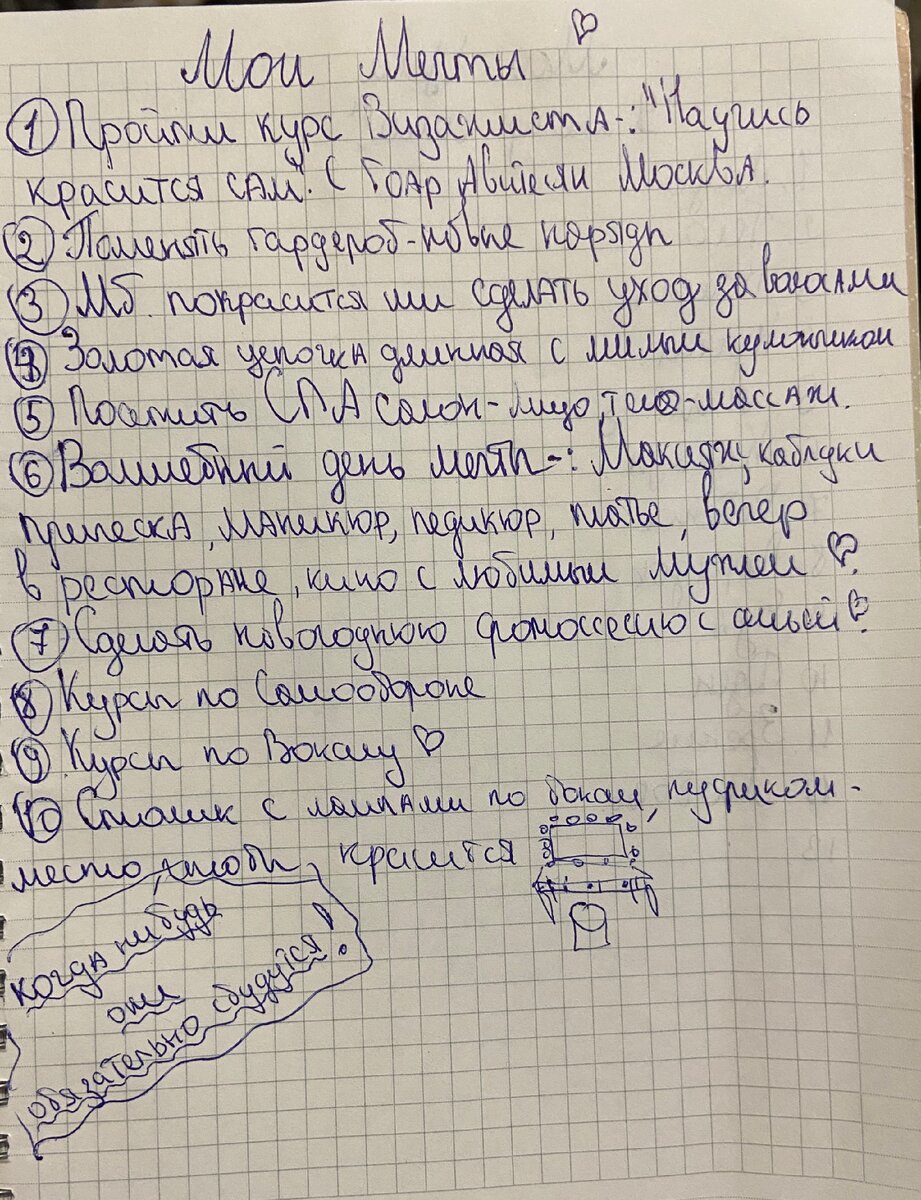 Мои Мечты
① Пройти курс Визажиста-: "Научись
красится сам". С Гоар Аветесян Москва.
② Поменять гардероб-новые наряды
③ Мб. покрасится или сделать уход за волосами
④ Золотая цепочка длинная с милым кулончиком
⑤ Посетить СПА салон-лицо, тело-массаж.
⑥ Волшебный день мечты-: Макияж, каблуки
прическа, маникюр, педикюр, платье, вечер
в ресторане, кино с любимым мужем
⑦ Сделать новогоднюю фотоссесию с семьёй
⑧ Курсы по Самообороне
⑨ Курсы по Вокалу
⑩ Столик с лампами по бокам, пуфиком-
место, чтобы красится
когда нибудь
они
обязательно сбудутся!